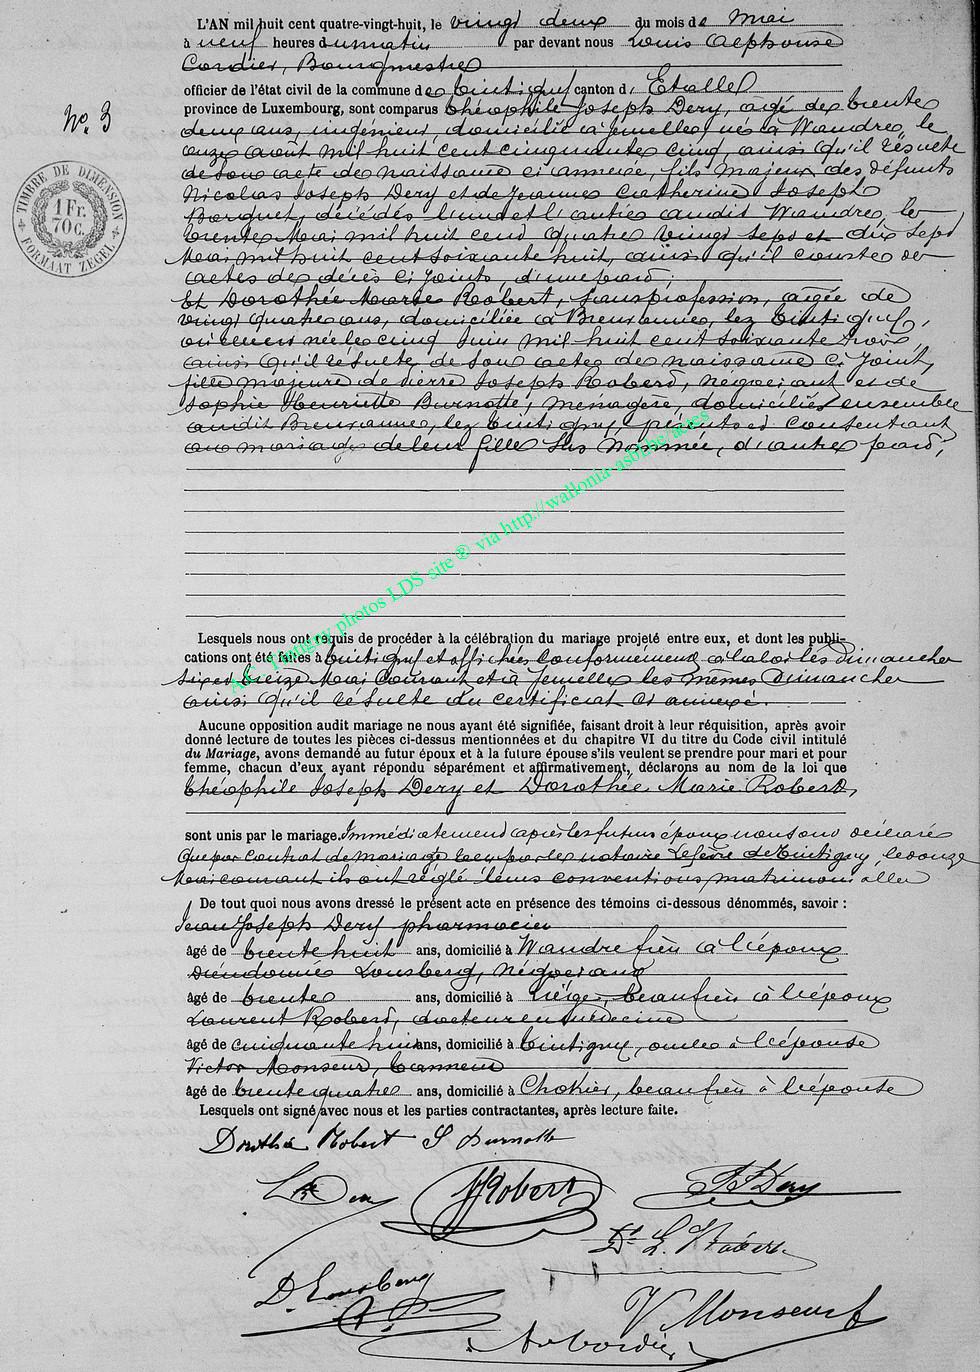 L'AN mil huit cent quatre-vingt-huit, le vingt deux du mois de Mai
à neuf heures du matin par devant nous Louis Alphonse
Cordier, Bourgmestre
officier de l'état civil de la commune de Tintigny canton d'Etalle
province de Luxembourg, sont comparus Théophile Joseph Dery, âgé de trente
deux ans, ingénieur, domicilié à Jemelle, né à Wandre, le
onze août mil huit cent cinquante cinq, ainsi qu'il résulte
de son acte de naissance ci annexé, fils majeur des défunts
Nicolas Joseph Dery et de Jeanne Catherine Joseph
décédés l'un et l'autre audit Wandre, le
trente Mai mil huit cent quatre vingt sept et dix sept
Mai mil huit cent soixante huit, ainsi qu'il conste de
actes de décès ci joints, d'une part;
Et Dorothée Marie Robert, sans profession, âgée de
vingt quatre ans, domiciliée à Breuvanne, lez Tintigny,
où elle est née le cinq Juin mil huit cent soixante trois,
ainsi qu'il résulte de son acte de naissance ci joint,
fille majeure de Pierre Joseph Robert, négociant et de
Sophie Henriette Burnotte, ménagère, domiciliés ensemble
audit Breuvanne, lez Tintigny, présents et consentant
au mariage de leur fille sus nommée, d'autre part;
Nº 3
TIMBRE DE DIMENSION
1 Fr. 70 c.
FORMAAT ZEGEL
A.C. Tintigny photos LDS site ® via http://wallonia-asbl.be/actes
Lesquels nous ont requis de procéder à la célébration du mariage projeté entre eux, et dont les publi-
cations ont été faites à Tintigny et affichées conformément à la loi les dimanches
six et treize Mai courant et à Jemelle les mêmes dimanches
ainsi qu'il résulte du certificat ci annexé.
Aucune opposition audit mariage ne nous ayant été signifiée, faisant droit à leur réquisition, après avoir
donné lecture de toutes les pièces ci-dessus mentionnées et du chapitre VI du titre du Code civil intitulé
du Mariage, avons demandé au futur époux et à la future épouse s'ils veulent se prendre pour mari et pour
femme, chacun d'eux, ayant répondu séparément et affirmativement, déclarons au nom de la loi que
Théophile Joseph Dery et Dorothée Marie Robert,
sont unis par le mariage. Immédiatement après les futurs époux nous ont déclaré
que par contrat de mariage reçu par le notaire Lefèvre de Tintigny, le onze
Mai courant ils ont réglé leurs conventions matrimonialles
De tout quoi nous avons dressé le présent acte en présence des témoins ci-dessous dénommés, savoir :
Jean Joseph Dery pharmacien
âgé de trente huit ans, domicilié à Wandre frère à l'époux
Dieudonné Lonsberg, négociant
âgé de trente ans, domicilié à Liége, beaufrère à l'époux
Laurent Robert, docteur en médecine
âgé de cinquante huit ans, domicilié à Tintigny, oncle à l'épouse
Victor Monseur, tanneur
âgé de trente quatre ans, domicilié à Chokier, beaufrère à l'épouse
Lesquels ont signé avec nous et les parties contractantes, après lecture faite.
Dorothée Robert S Burnotte
Robert J J Dery
Dr L. Robert
D. Lonsberg
V Monseur
Cordier